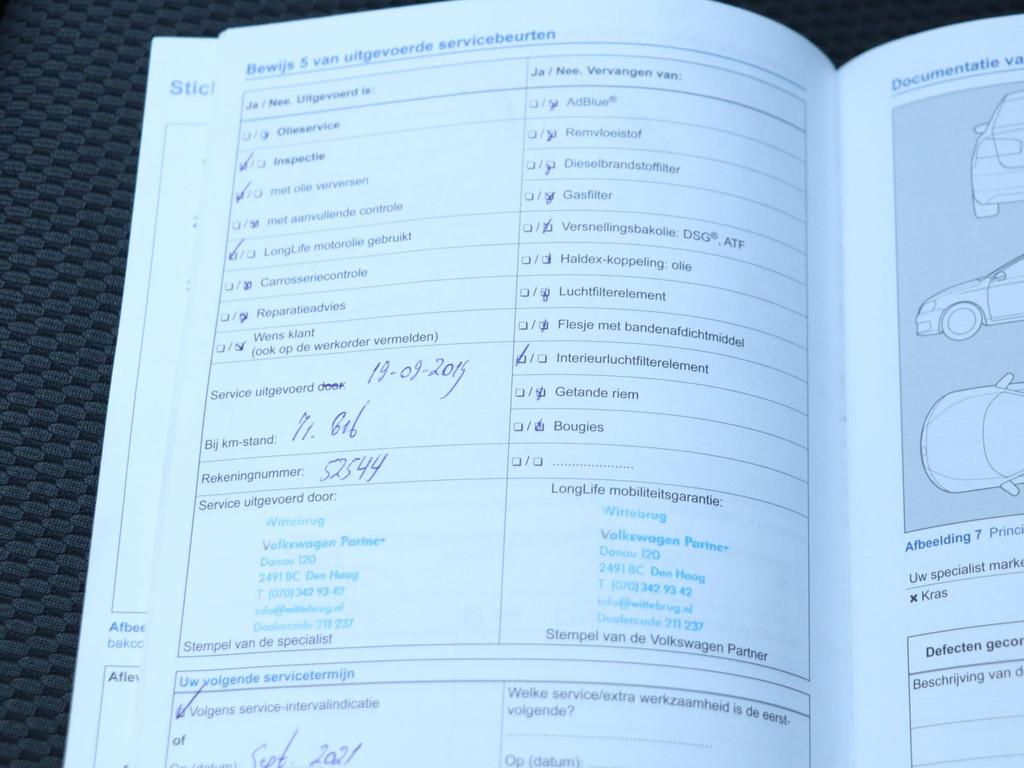 Stic
Bewijs 5 van uitgevoerde servicebeurten
Ja / Nee. Uitgevoerd is:
❏ / ❏ Olieservice
❏ / ❏ Inspectie
❏ / ❏ met olie verversen
❏ / ❏ met aanvullende controle
❏ / ❏ LongLife motorolie gebruikt
❏ / ❏ Carrosseriecontrole
❏ / ❏ Reparatieadvies
❏ / ❏ Wens klant
(ook op de werkorder vermelden)
Service uitgevoerd door: 19-09-2019
Bij km-stand: 71.616
Rekeningnummer: 52544
Ja / Nee. Vervangen van:
❏ / ❏ AdBlue®
❏ / ❏ Remvloeistof
❏ / ❏ Dieselbrandstoffilter
❏ / ❏ Gasfilter
❏ / ❏ Versnellingsbakolie: DSG®, ATF
❏ / ❏ Haldex-koppeling: olie
❏ / ❏ Luchtfilterelement
❏ / ❏ Flesje met bandenafdichtmiddel
❏ / ❏ Interieurluchtfilterelement
❏ / ❏ Getande riem
❏ / ❏ Bougies
❏ / ❏ .....................
Service uitgevoerd door:
Wittebrug
Volkswagen Partner
Donau 120
2491 BC Den Haag
T (070) 342 93 42
info@wittebrug.nl
Dealercode 211 237
Stempel van de specialist
LongLife mobiliteitsgarantie:
Wittebrug
Volkswagen Partner
Donau 120
2491 BC Den Haag
T (070) 342 93 42
info@wittebrug.nl
Dealercode 211 237
Stempel van de Volkswagen Partner
Uw volgende servicetermijn
❏ Volgens service-intervalindicatie
of
Op (datum): Sept. 2021
Welke service/extra werkzaamheid is de eerst-
volgende?
Op (datum):
Afbee
bakco
Aflev
Documentatie va
Afbeelding 7 Princi
Uw specialist marke
✖ Kras
Defecten gecor
Beschrijving van d